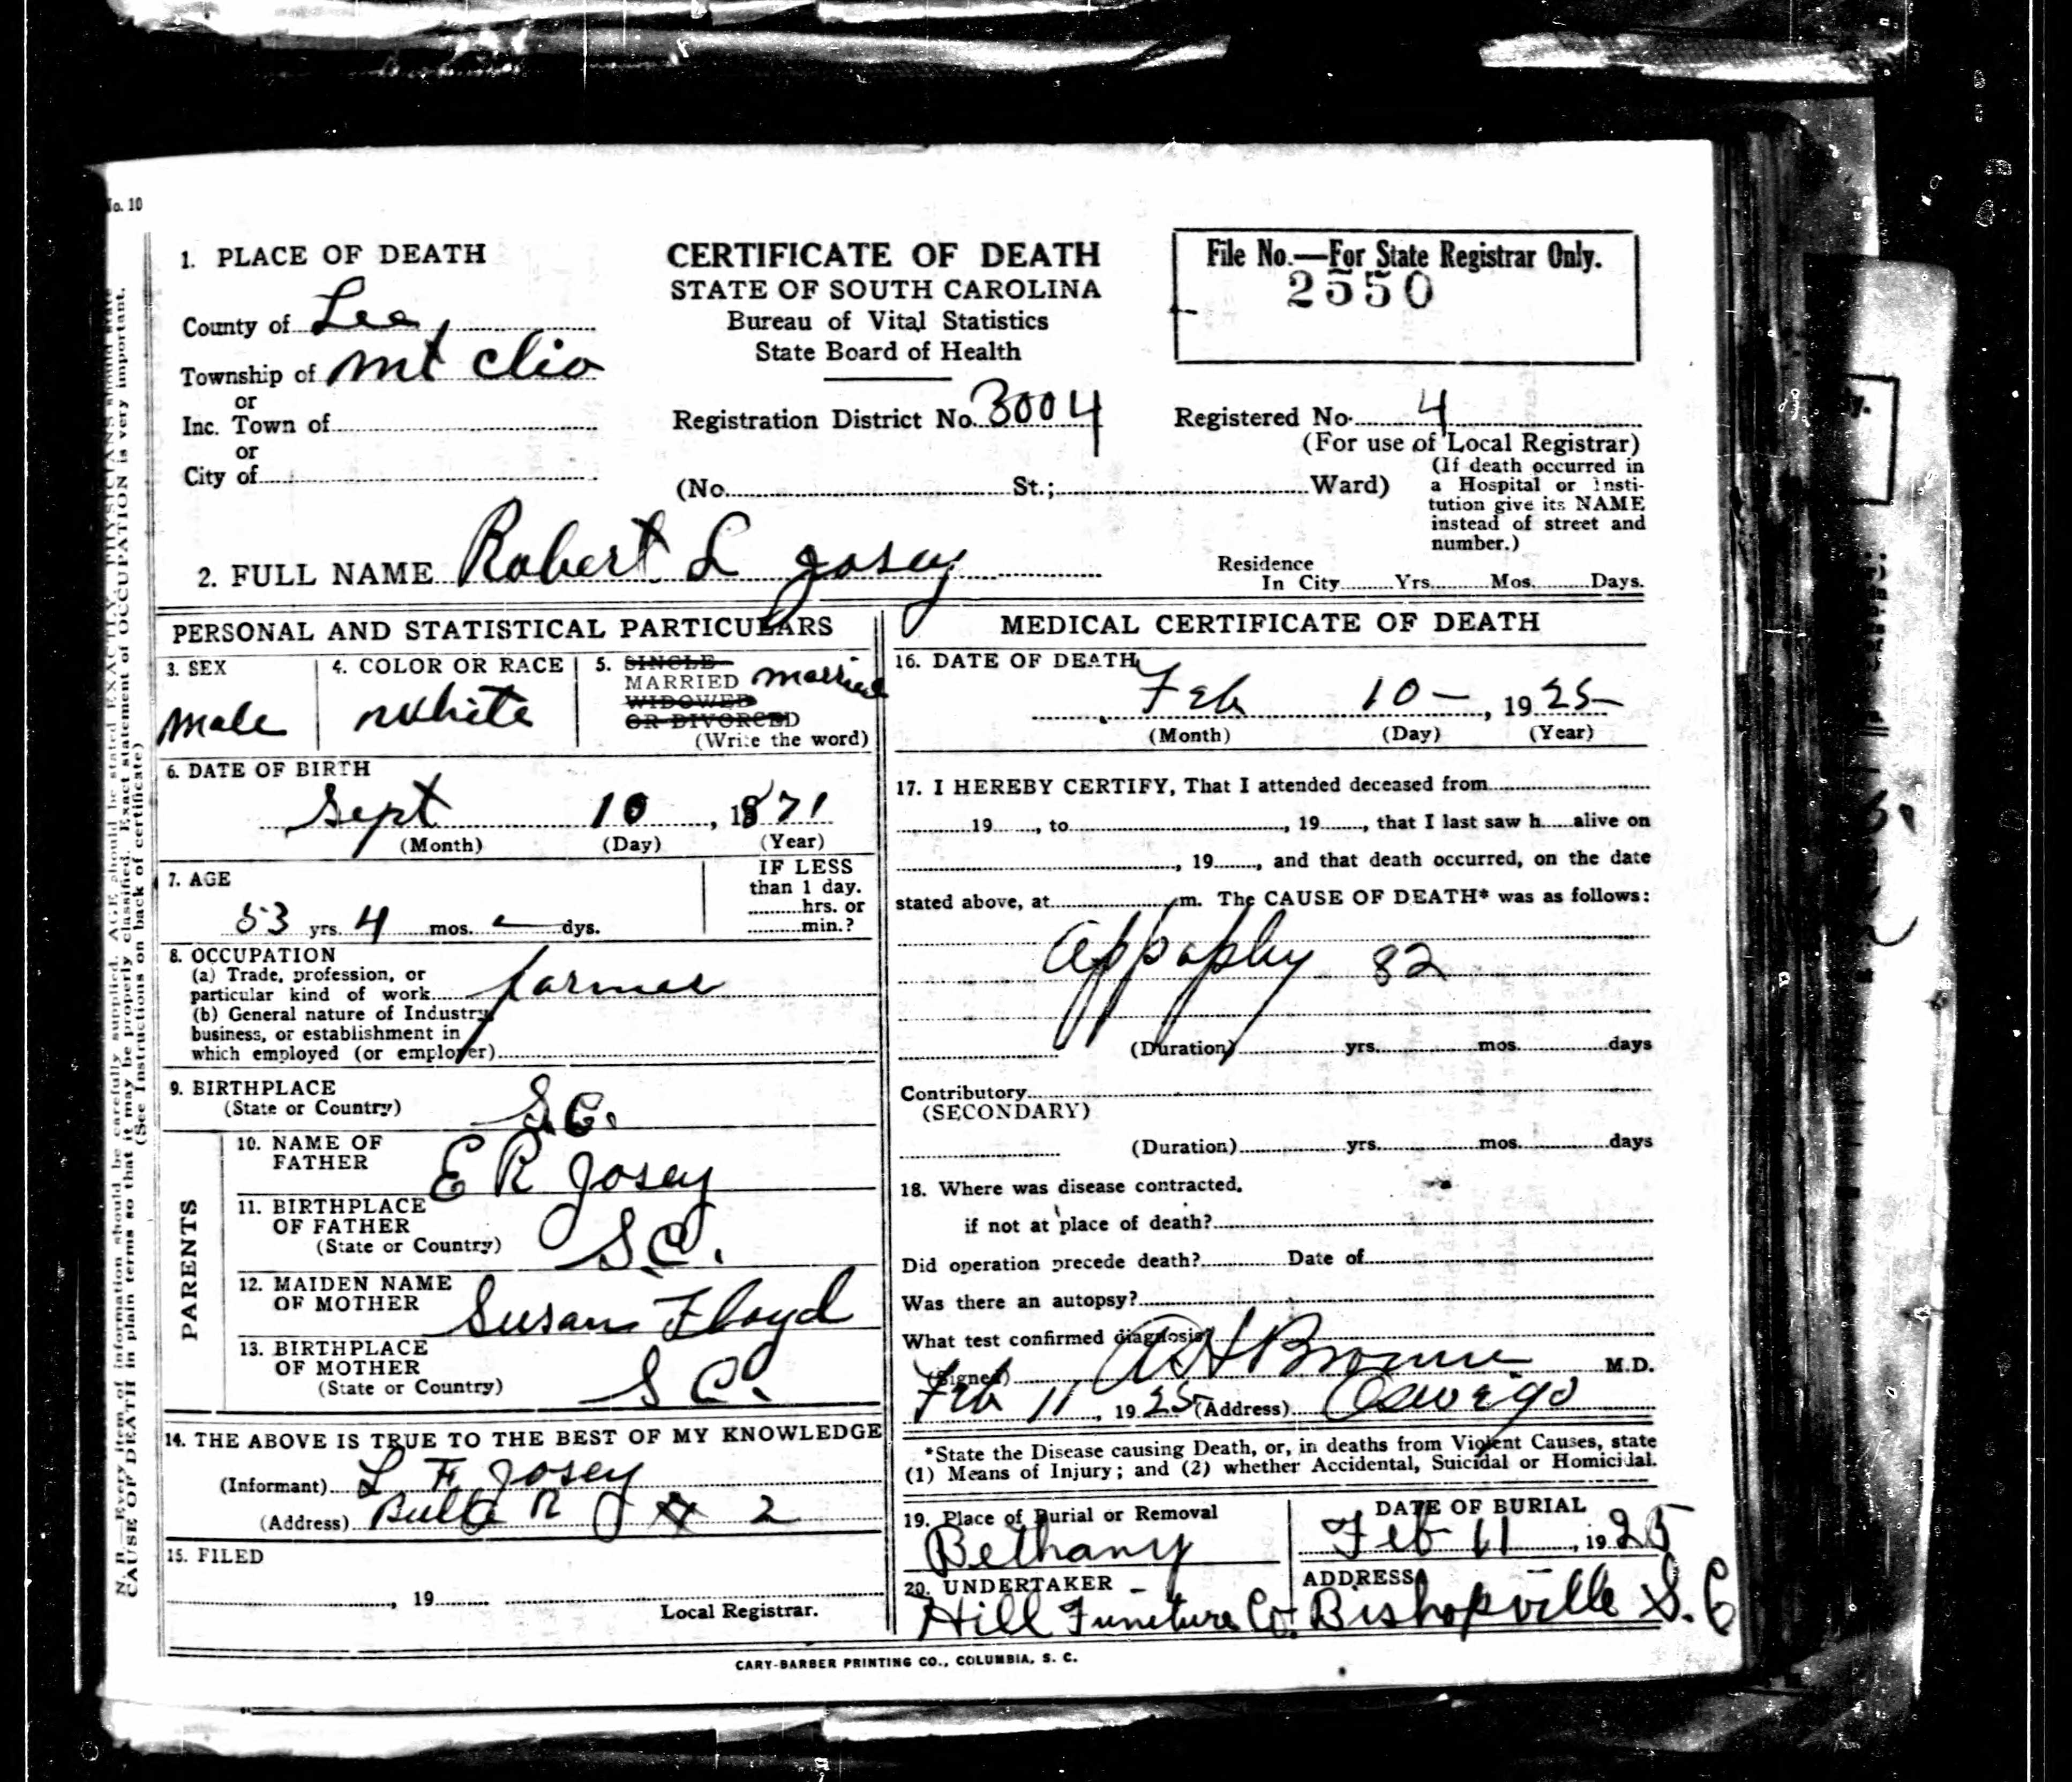 No. 10
1. PLACE OF DEATH
County of Lee
Township of Mt Clio
or
Inc. Town of
or
City of
CERTIFICATE OF DEATH
STATE OF SOUTH CAROLINA
Bureau of Vital Statistics
State Board of Health
Registration District No. 3004
File No.—For State Registrar Only.
2550
Registered No. 4
(For use of Local Registrar)
(No. St.; Ward)
(If death occurred in
a Hospital or Insti-
tution give its NAME
instead of street and
number.)
2. FULL NAME Robert L Josey
Residence
In City Yrs. Mos. Days.
PERSONAL AND STATISTICAL PARTICULARS
3. SEX
Male
4. COLOR OR RACE
White
5. SINGLE
MARRIED married
WIDOWED
OR DIVORCED
(Write the word)
6. DATE OF BIRTH
Sept 10, 1871
(Month) (Day) (Year)
7. AGE
53 yrs. 4 mos. — dys.
IF LESS
than 1 day.
hrs. or
min.?
8. OCCUPATION
(a) Trade, profession, or
particular kind of work farmer
(b) General nature of Industry,
business, or establishment in
which employed (or employer)
9. BIRTHPLACE
(State or Country) S.C.
PARENTS
10. NAME OF
FATHER E R Josey
11. BIRTHPLACE
OF FATHER
(State or Country) S.C.
12. MAIDEN NAME
OF MOTHER Susan Floyd
13. BIRTHPLACE
OF MOTHER
(State or Country) S C.
14. THE ABOVE IS TRUE TO THE BEST OF MY KNOWLEDGE
(Informant) L F Josey
(Address) R 2
15. FILED
, 19
Local Registrar.
MEDICAL CERTIFICATE OF DEATH
16. DATE OF DEATH
Feb 10 —, 1925
(Month) (Day) (Year)
17. I HEREBY CERTIFY, That I attended deceased from
19, to, 19, that I last saw h alive on
, 19, and that death occurred, on the date
stated above, at m. The CAUSE OF DEATH* was as follows:
Appoplhy 82
(Duration) yrs. mos. days
Contributory
(SECONDARY)
(Duration) yrs. mos. days
18. Where was disease contracted,
if not at place of death?
Did operation precede death? Date of
Was there an autopsy?
What test confirmed diagnosis
(Signed) M.D.
Feb 11, 1925 (Address) Oswego
*State the Disease causing Death, or, in deaths from Violent Causes, state
(1) Means of Injury; and (2) whether Accidental, Suicidal or Homicidal.
19. Place of Burial or Removal
Bethany
DATE OF BURIAL
Feb 11, 1925
20. UNDERTAKER
Hill Funeture Co.
ADDRESS
Bishopville S. C
N. B.—Every item of information should be carefully supplied. AGE should be stated EXACTLY. PHYSICIANS should state
CAUSE OF DEATH in plain terms so that it may be properly classified. Exact statement of OCCUPATION is very important.
(See Instructions on back of certificate)
CARY-BARBER PRINTING CO., COLUMBIA, S. C.